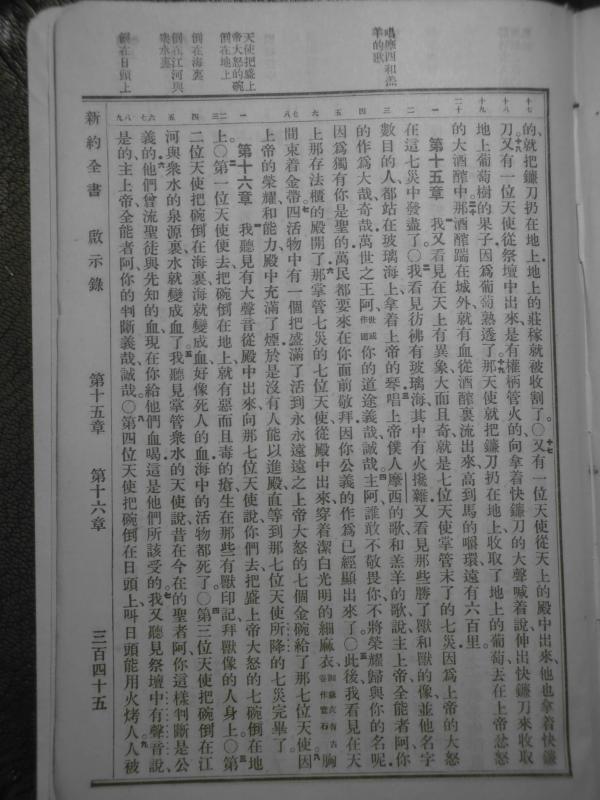 唱摩西和羔
羊的歌
天使把盛上
帝大怒的碗
倒在地上
倒在海裏
倒在江河與
衆水裏
倒在日頭上
十七
十八
十九
二十
一
二
三
四
五
六
七
八
一
二
三
四
五
六
七
八
九
的就把鐮刀扔在地上地上的莊稼就被收割了〇又有一位天使從天上的殿中出來他也拿着快鐮
刀又有一位天使從祭壇中出來是有權柄管火的向拿着快鐮刀的大聲喊着說伸出快鐮刀來收取
地上葡萄樹的果子因爲葡萄熟透了那天使就把鐮刀扔在地上收取了地上的葡萄丢在上帝忿怒
的大酒醡中那酒醡踹在城外就有血從酒醡裏流出來高到馬的嚼環遠有六百里
第十五章 我又看見在天上有異象大而且奇就是七位天使掌管末了的七災因爲上帝的大怒
在這七災中發盡了〇我看見彷彿有玻璃海其中有火攙雜又看見那些勝了獸和獸的像並他名字
數目的人都站在玻璃海上拿着上帝的琴唱上帝僕人摩西的歌和羔羊的歌說主上帝全能者阿你
的作爲大哉奇哉萬世之王阿世或作國你的道途義哉誠哉主阿誰敢不敬畏你不將榮耀歸與你的名呢
因爲獨有你是聖的萬民都要來在你面前敬拜因你公義的作爲已經顯出來了〇此後我看見在天
上那存法櫃的殿開了那掌管七災的七位天使從殿中出來穿着潔白光明的細麻衣細麻衣有古卷作寶石胸
間束着金帶四活物中有一個把盛滿了活到永永遠遠之上帝大怒的七個金碗給了那七位天使因
上帝的榮耀和能力殿中充滿了煙於是沒有人能以進殿直等到那七位天使所降的七災完畢了
第十六章 我聽見有大聲音從殿中出來向那七位天使說你們去把盛上帝大怒的七碗倒在地
上〇第一位天使便去把碗倒在地上就有惡而且毒的瘡生在那些有獸印記拜獸像的人身上〇第
二位天使把碗倒在海裏海就變成血好像死人的血海中的活物都死了〇第三位天使把碗倒在江
河與衆水的泉源裏水就變成血了我聽見掌管衆水的天使說昔在今在的聖者阿你這樣判斷是公
義的他們曾流聖徒與先知的血現在你給他們血喝這是他們所該受的我又聽見祭壇中有聲音說
是的主上帝全能者阿你的判斷義哉誠哉〇第四位天使把碗倒在日頭上叫日頭能用火烤人人被
新約全書 啟示錄 第十五章 第十六章 三百四十五